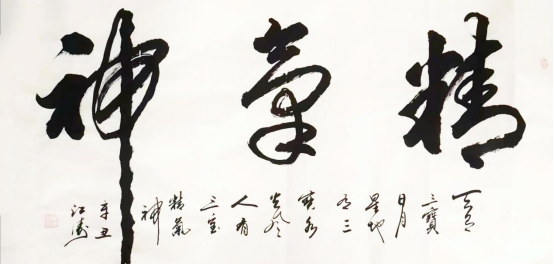 精氣神
天有
三寶
日月
星地
有三
寶水
火風
人有
三宝
精氣
神
辛丑